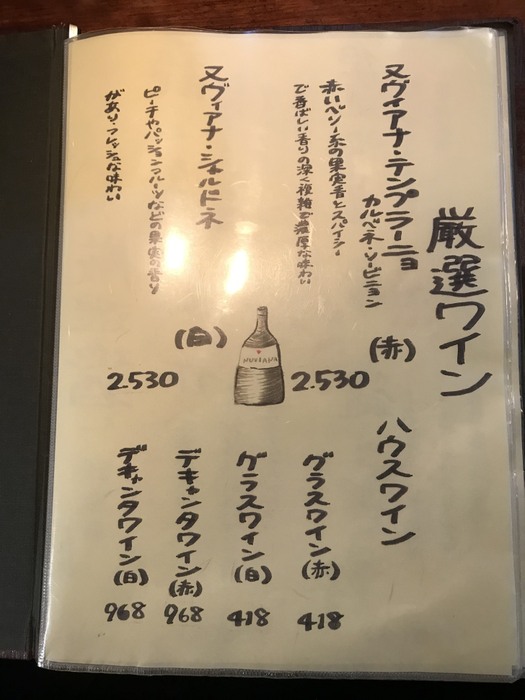 厳選ワイン
ヌヴィアナ・テンプラーニョ
カルベネ・ソービニョン
(赤)
赤いベリー系の果実香とスパイシー
で香ばしい香りの深く複雑で濃厚な味わい
2.530
NUVIANA
ヌヴィアナ・シャルドネ
(白)
ピーチやパッションフルーツなどの果実の香り
があり・フレッシュな味わい
2.530
ハウスワイン
グラスワイン(赤)
418
グラスワイン(白)
418
デキャンタワイン(赤)
968
デキャンタワイン(白)
968